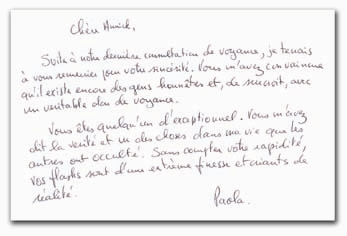 Chère Annick,
Suite à notre dernière consultation de voyance, je tenais
à vous remercier pour votre sincérité. Vous m'avez convaincue
qu'il existe encore des gens honnêtes et, de surcroit, avec
un véritable don de voyance.
Vous êtes quelqu'un d'exceptionnel. Vous m'avez
dit la vérité et vu des choses dans ma vie que les
autres ont occulté. Sans compter votre rapidité,
vos flashs sont d'une extrême finesse et criants de
réalité.
Paola.